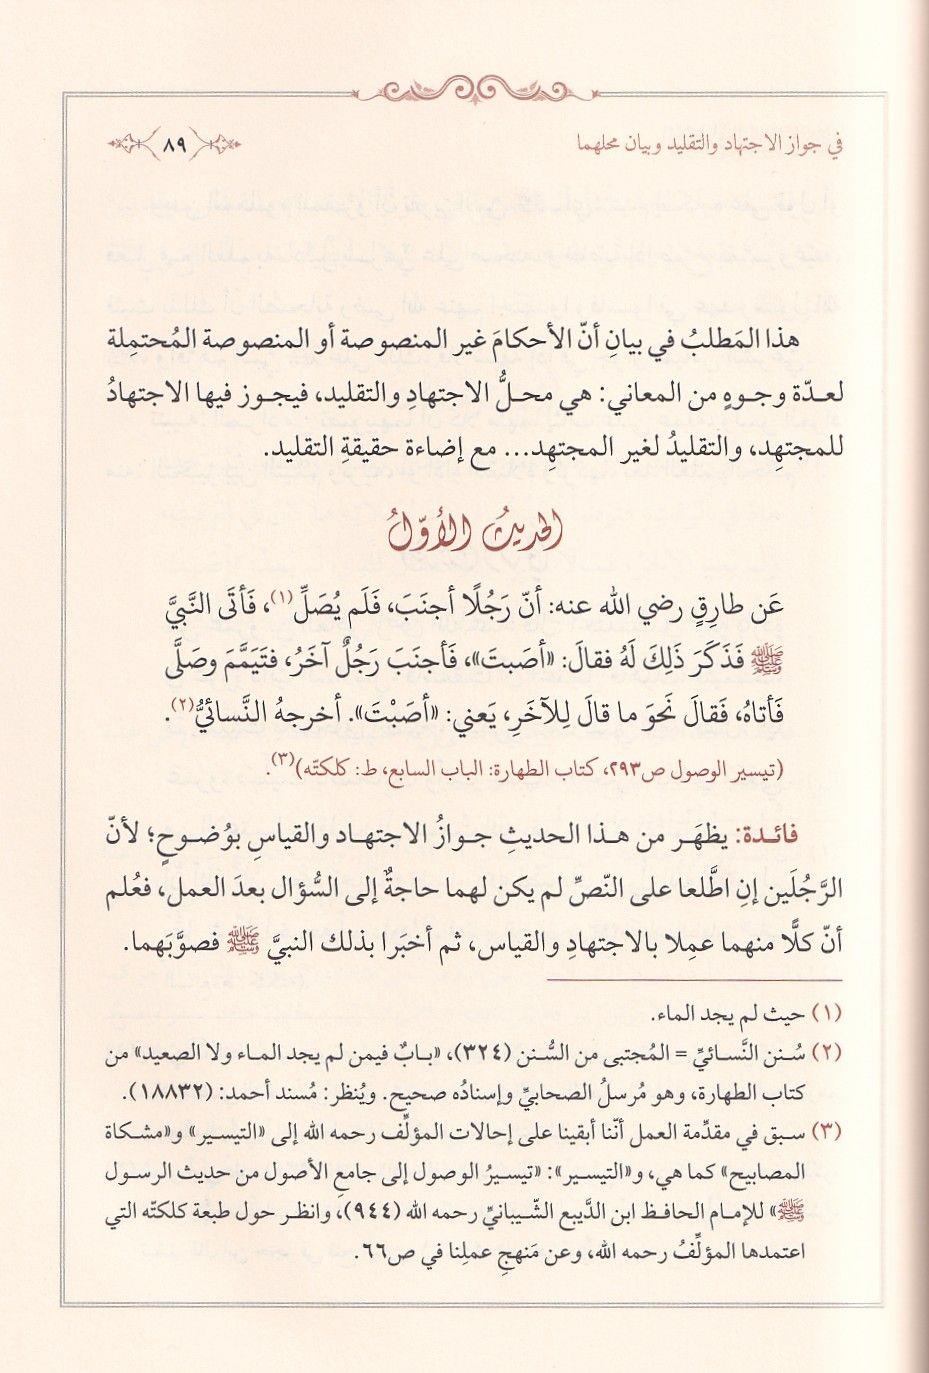 في جواز الاجتهاد والتقليد وبيان محلهما ٨٩
هذا المَطلبُ في بيانِ أنّ الأحكامَ غير المنصوصة أو المنصوصة المُحتمِلة
لعدّة وجوهٍ من المعاني: هي محلُّ الاجتهادِ والتقليد، فيجوز فيها الاجتهادُ
للمجتهِد، والتقليدُ لغير المجتهِد... مع إضاءة حقيقةِ التقليد.
الحديثُ الأوّلُ
عَن طارِقٍ رضي الله عنه: أنّ رَجُلًا أجنَبَ، فَلَم يُصَلِّ(١)، فَأتَى النَّبيَّ
ﷺ فَذَكَرَ ذَلِكَ لَهُ فقالَ: «أصَبتَ»، فَأجنَبَ رَجُلٌ آخَرُ، فتَيَمَّمَ وصَلَّى
فَأتاهُ، فَقالَ نَحوَ ما قالَ لِلآخَرِ، يَعني: «أصَبْتَ». أخرجهُ النَّسائيُّ(٢).
(تيسير الوصول ص٢٩٣، كتاب الطهارة: الباب السابع، ط: كلكتّه)(٣).
فائدة: يظهَر من هذا الحديثِ جوازُ الاجتهاد والقياسِ بوُضوحٍ؛ لأنّ
الرَّجُلَين إنِ اطَّلعا على النّصِّ لم يكن لهما حاجةٌ إلى السُّؤال بعدَ العمل، فعُلم
أنّ كلًّا منهما عمِلا بالاجتهادِ والقياس، ثم أخبَرا بذلك النبيَّ ﷺ فصوَّبَهما.
(١) حيث لم يجد الماء.
(٢) سُنن النَّسائيِّ = المُجتبى من السُّنن (٣٢٤)، «بابٌ فيمن لم يجد الماء ولا الصعيد» من
كتاب الطهارة، وهو مُرسلُ الصحابيِّ وإسنادُه صحيح. ويُنظر: مُسند أحمد: (١٨٨٣٢).
(٣) سبق في مقدِّمة العمل أنّنا أبقينا على إحالات المؤلِّف رحمه الله إلى «التيسير» و«مشكاة
المصابيح» كما هي، و«التيسير»: «تيسيرُ الوصول إلى جامعِ الأصول من حديث الرسول
ﷺ» للإمام الحافظ ابن الدَّيبع الشّيبانيِّ رحمه الله (٩٤٤)، وانظر حول طبعة كلكتّه التي
اعتمدها المؤلِّفُ رحمه الله، وعن مَنهجِ عملِنا في ص٦٦.